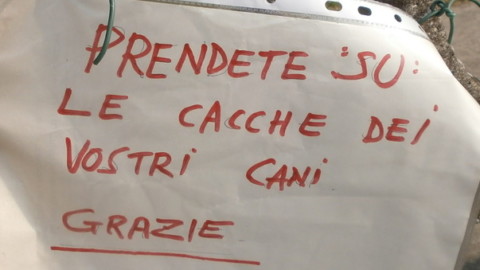 PRENDETE "SU":
LE CACCHE DEI
VOSTRI CANI
GRAZIE